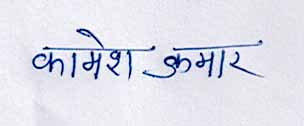 कामेश कुमार